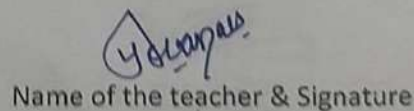 Name of the teacher & Signature